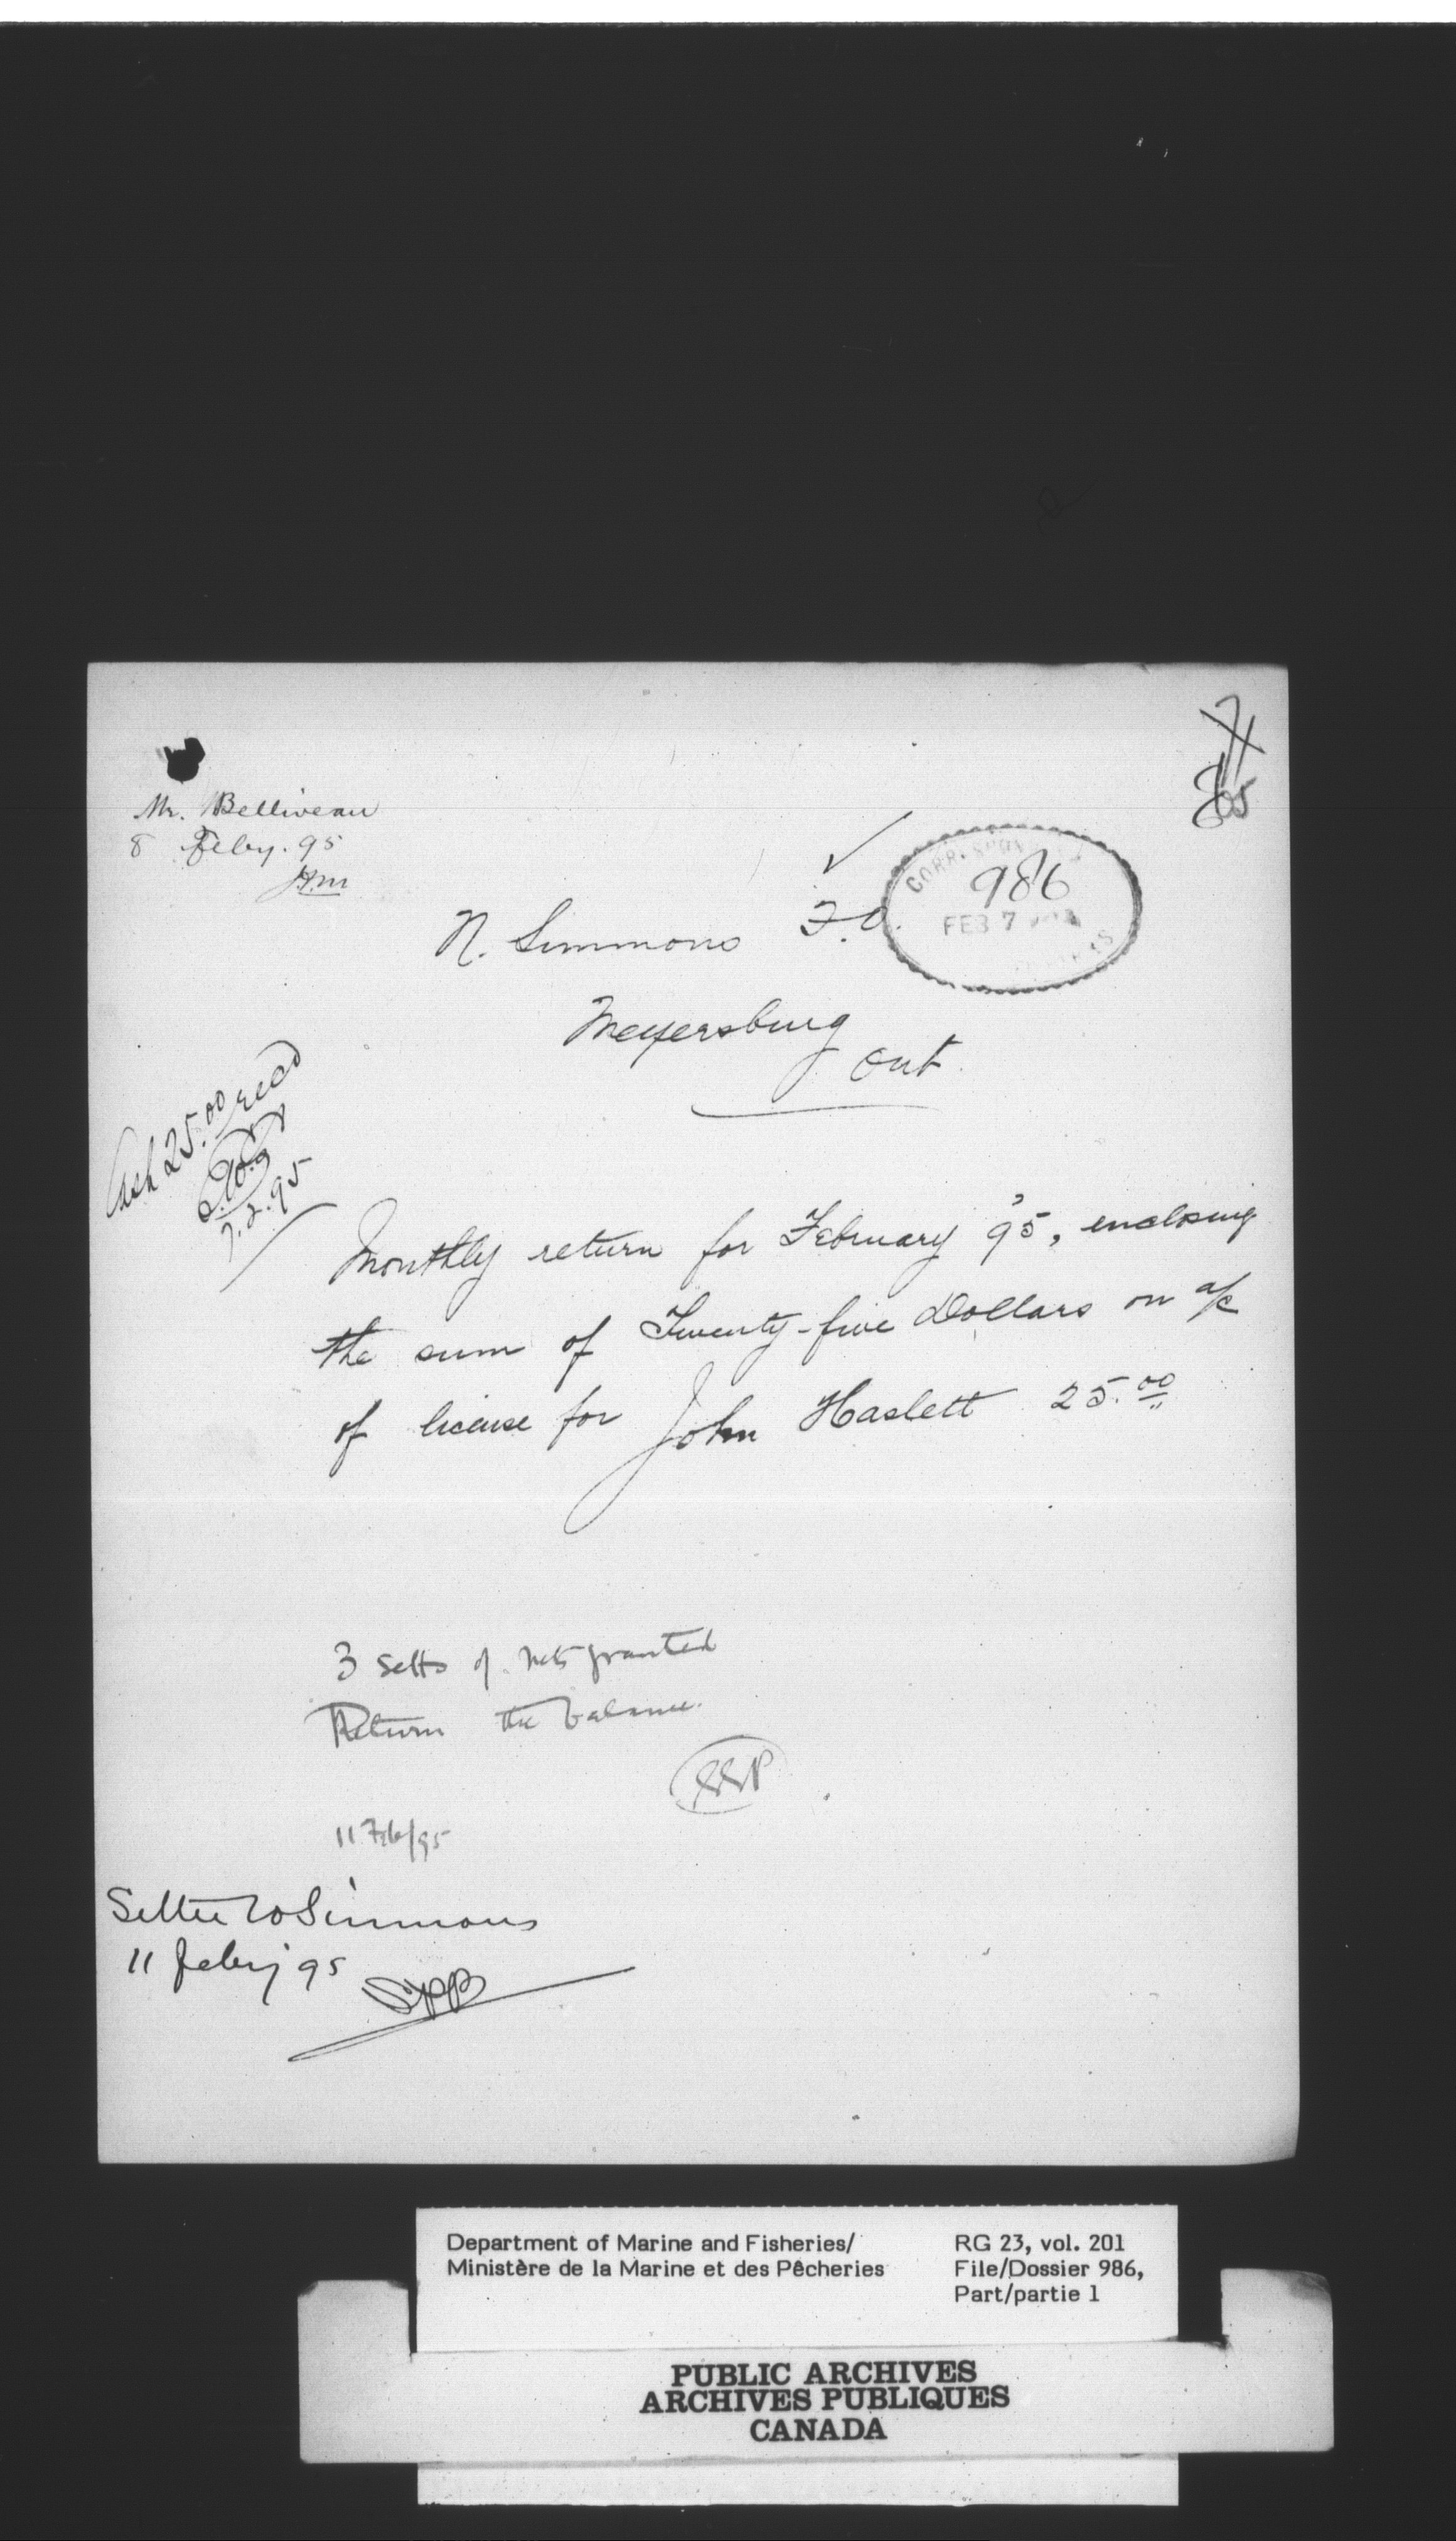 Mr. Belliveau
8 Feby. 95
986
FEB 7
N. Simmons F.O.
Meyersburg
Ont.
Cash 25.00 recd
7.2.95
Monthly return for February '95, enclosing
the sum of Twenty-five Dollars on a/c
of license for John Haslett 25.00
3 setts of nets granted
Return the balance.
11 Feb/95
Letter to Simmons
11 Feby 95
Department of Marine and Fisheries/
Ministère de la Marine et des Pêcheries
RG 23, vol. 201
File/Dossier 986,
Part/partie 1
PUBLIC ARCHIVES
ARCHIVES PUBLIQUES
CANADA